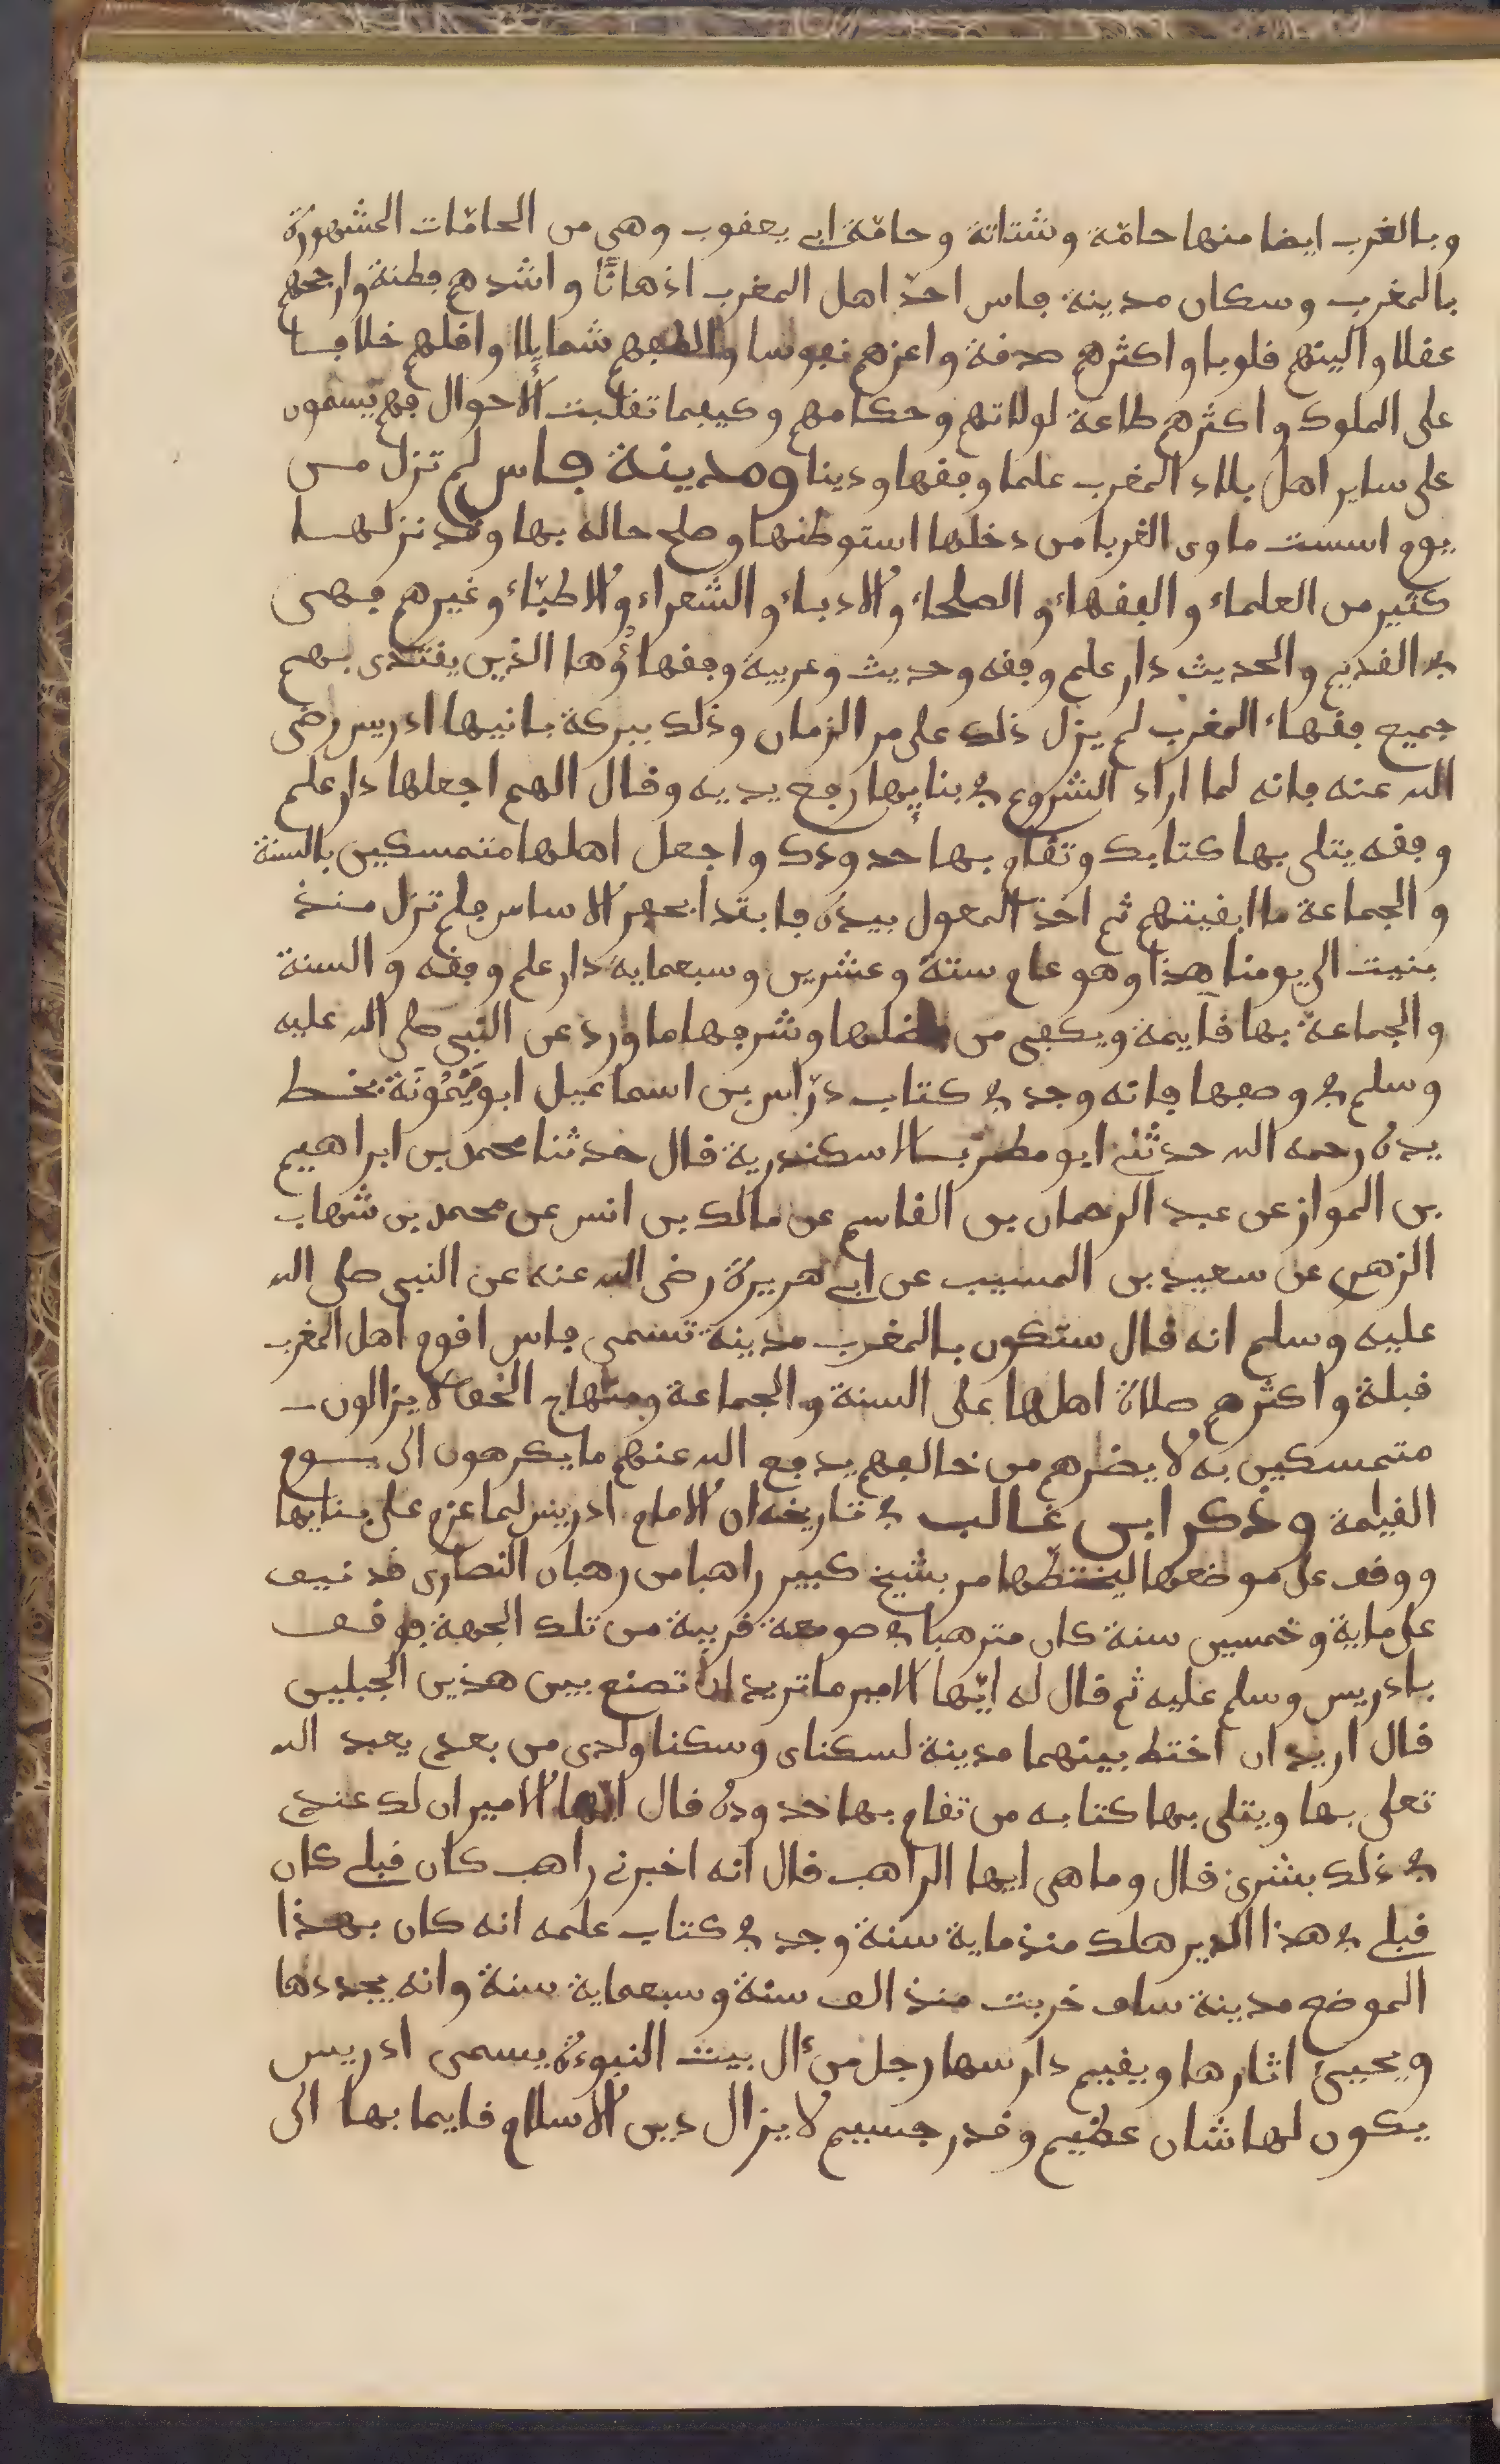 وبالغرب ايضا منها حامّة وشتاتة وحامّة ابي يعقوب وهي من الحامّات المشهورة
بالمغرب وسكان مدينة فاس احدّ اهل المغرب اذهانًا واشدهم فطنة وارجحهم
عقلا والينهم قلوبا واكثرهم صدقة واعزهم نفوسا والطفهم شمايلا واقلهم خلافا
على الملوك واكثرهم طاعة لولاتهم وحكامهم وكيفما تقلبت الاحوال فهم يسمون
على ساير اهل بلاد المغرب علما وفقها ودينا ومدينة فاس لم تزل من
يوم اسست ماوى الغربا من دخلها استوطنها وصلح حاله بها وقد نزلها
كثير من العلماء والفقهاء والصلحاء والادباء والشعراء والاطبّاء وغيرهم فهي
في القديم والحديث دار علم وفقه وحديث وعربية وفقهاؤها الذين يقتدى بهم
جميع فقهاء المغرب لم يزل ذلك على مر الزمان وذلك ببركة بانيها ادريس رضي
الله عنه فانه لما اراد الشروع في بنايها رفع يديه وقال الهم اجعلها دار علم
وفقه يتلى بها كتابك وتقام بها حدودك واجعل اهلها متمسكين بالسنة
والجماعة ما ابقيتهم ثم اخذ المعول بيده فابتدا بحفر الاساس فلم تزل منذ
بنيت الى يومنا هذا وهو عام ستة وعشرين وسبعماية دار علم وفقه والسنة
والجماعة بها قايمة ويكفي من فضلها وشرفها ما ورد عن النبي صلى الله عليه
وسلم في وصفها فانه وجد في كتاب درّاس بن اسماعيل ابو مَيْمُونَة بخط
يده رحمه الله حدثني ابو مطرّ بالاسكندرية قال حدثنا محمد بن ابراهيم
بن المواز عن عبد الرحمان بن القاسم عن مالك بن انس عن محمد بن شهاب
الزهري عن سعيد بن المسيب عن ابي هريرة رضي الله عنه عن النبي صلى الله
عليه وسلم انه قال ستكون بالمغرب مدينة تسمى فاس اقوم اهل المغرب
قبلة واكثرهم صلاة اهلها على السنة والجماعة ومنهاج الحق لا يزالون
متمسكين به لا يضرهم من خالفهم يدفع الله عنهم ما يكرهون الى يوم
القيمة وذكر ابن غالب في تاريخه ان الامام ادريس لما عزم على بنايها
ووقف على موضعها ليختطها مر بشيخ كبير راهبا من رهبان النصارى قد نيف
على ماية وخمسين سنة كان مترهبا في صومعة قريبة من تلك الجهة فوقف
بادريس وسلم عليه ثم قال له ايّها الامير ما تريد ان تصنع بين هذين الجبلين
قال اريد ان اختط بينهما مدينة لسكناى وسكنا ولدى من بعدي يعبد الله
تعلى بها ويتلى بها كتابه من تقام بها حدوده قال ايّها الامير ان لك عندي
في ذلك بشرى قال وما هي ايها الراهب قال انه اخبرني راهب كان قبلي كان
قبلي في هذا الدير هلك منذ ماية سنة وجد في كتاب علمه انه كان بهذا
الموضع مدينة ساف خربت منذ الف سنة وسبعماية سنة وانه يجددها
ويحيىء اثارها ويقيم دارسها رجل من ءال بيت النبوءة يسمى ادريس
يكون لها شان عظيم وقدر جسيم لا يزال دين الاسلام قايما بها الى